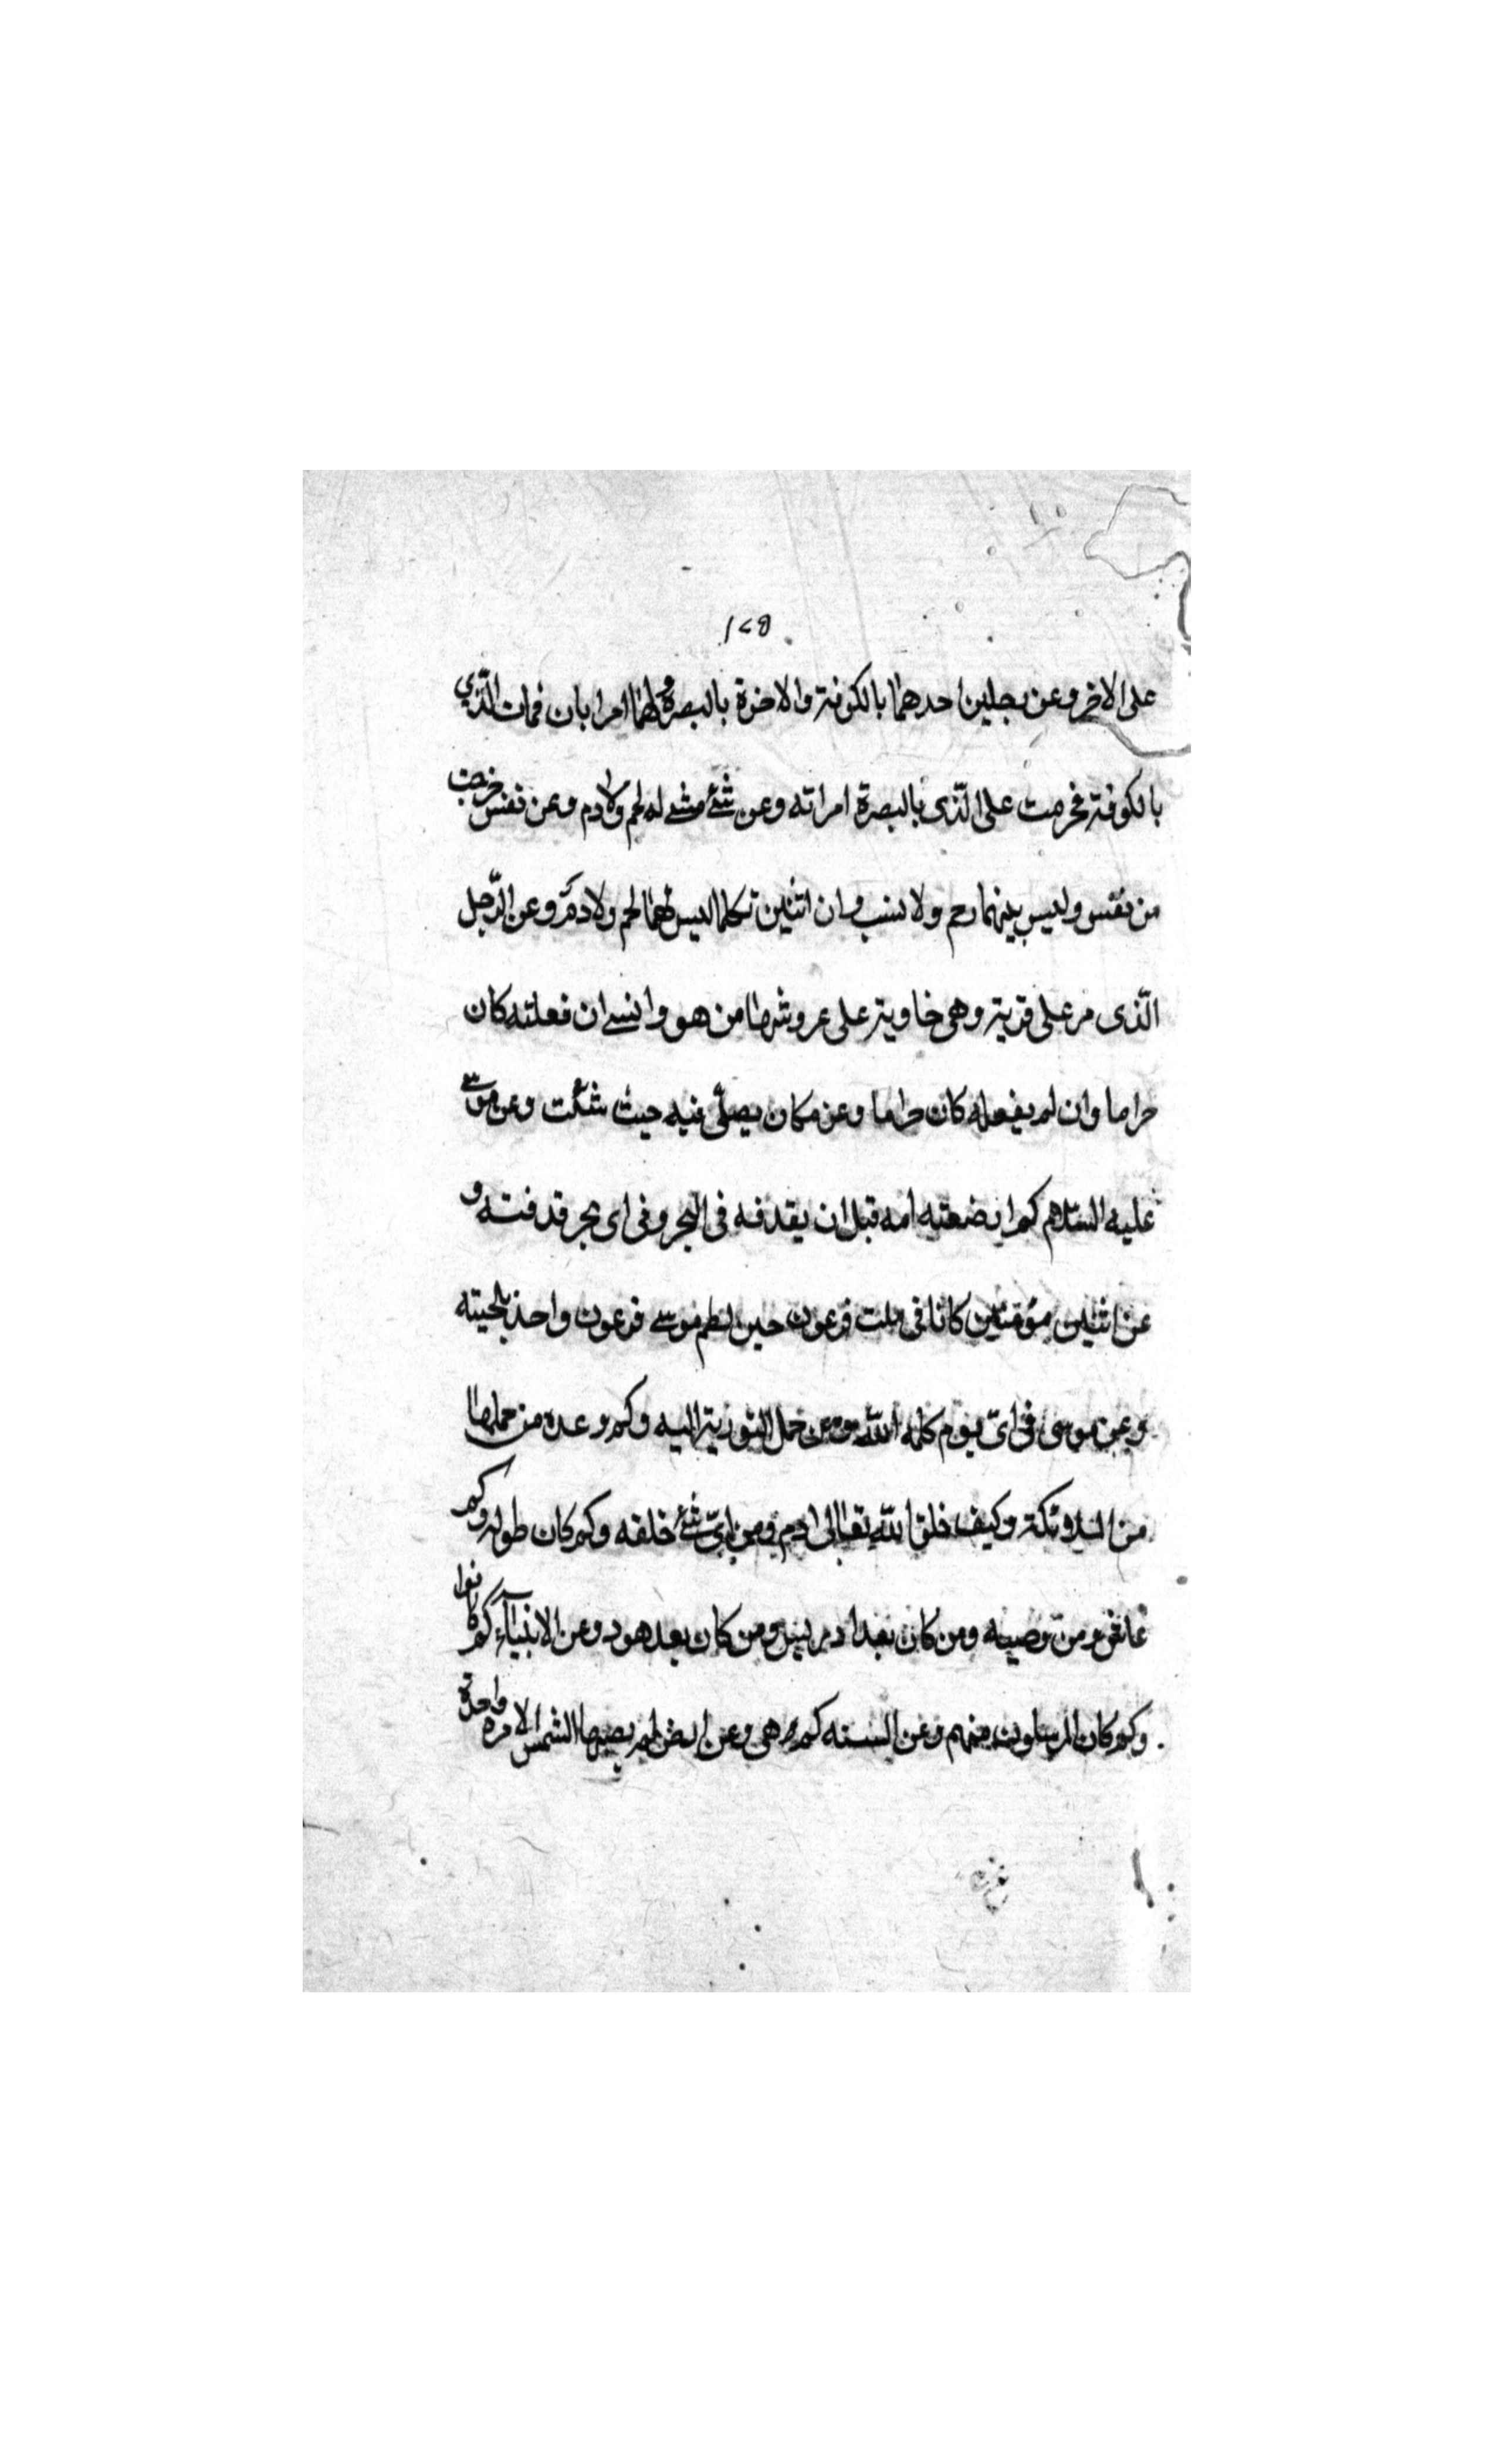 ١٢٥
على الاخر وعن رجلين احدهما بالكوفة والاخرة بالبصرة ولهما امراتان فمات الذي
بالكوفة فحرمت على الذى بالبصرة امراته وعن شئ مشى له لحم ولا دم وعن نفس خرجت
من نفس وليس بينهما رحم ولا نسب وان اثنين تكلما ليس لهما لحم ولا دم وعن الرجل
الذى مر على قرية وهى خاوية على عروشها من هو وانسى ان فعلته كان
حراما وان لم يفعله كان حراما وعن مكان يصلى فيه حيث شئت وعن موسى
عليه السلام كم ارضعته امه قبل ان يقدفه فى البحر وفى اى بحر قدفته و
عن اثنين مؤمنين كانا فى بيت فرعون حين لطم موسى فرعون واخذ بلحيته
وعن موسى فى اى يوم كلمه الله ومن حمل التورية اليه وكم وعدة من حملها
من الملائكة وكيف خلق الله تعالى ادم ومن اى شئ خلقه وكم كان طوله وكم
عاش ومن وصيه ومن كان بعد ادريس ومن كان بعد هود وعن الانبياء كم كانوا
وكم كان المرسلون منهم وعن السنه كم هى وعن ارض لم يصبها الشمس الا مرة واحدة